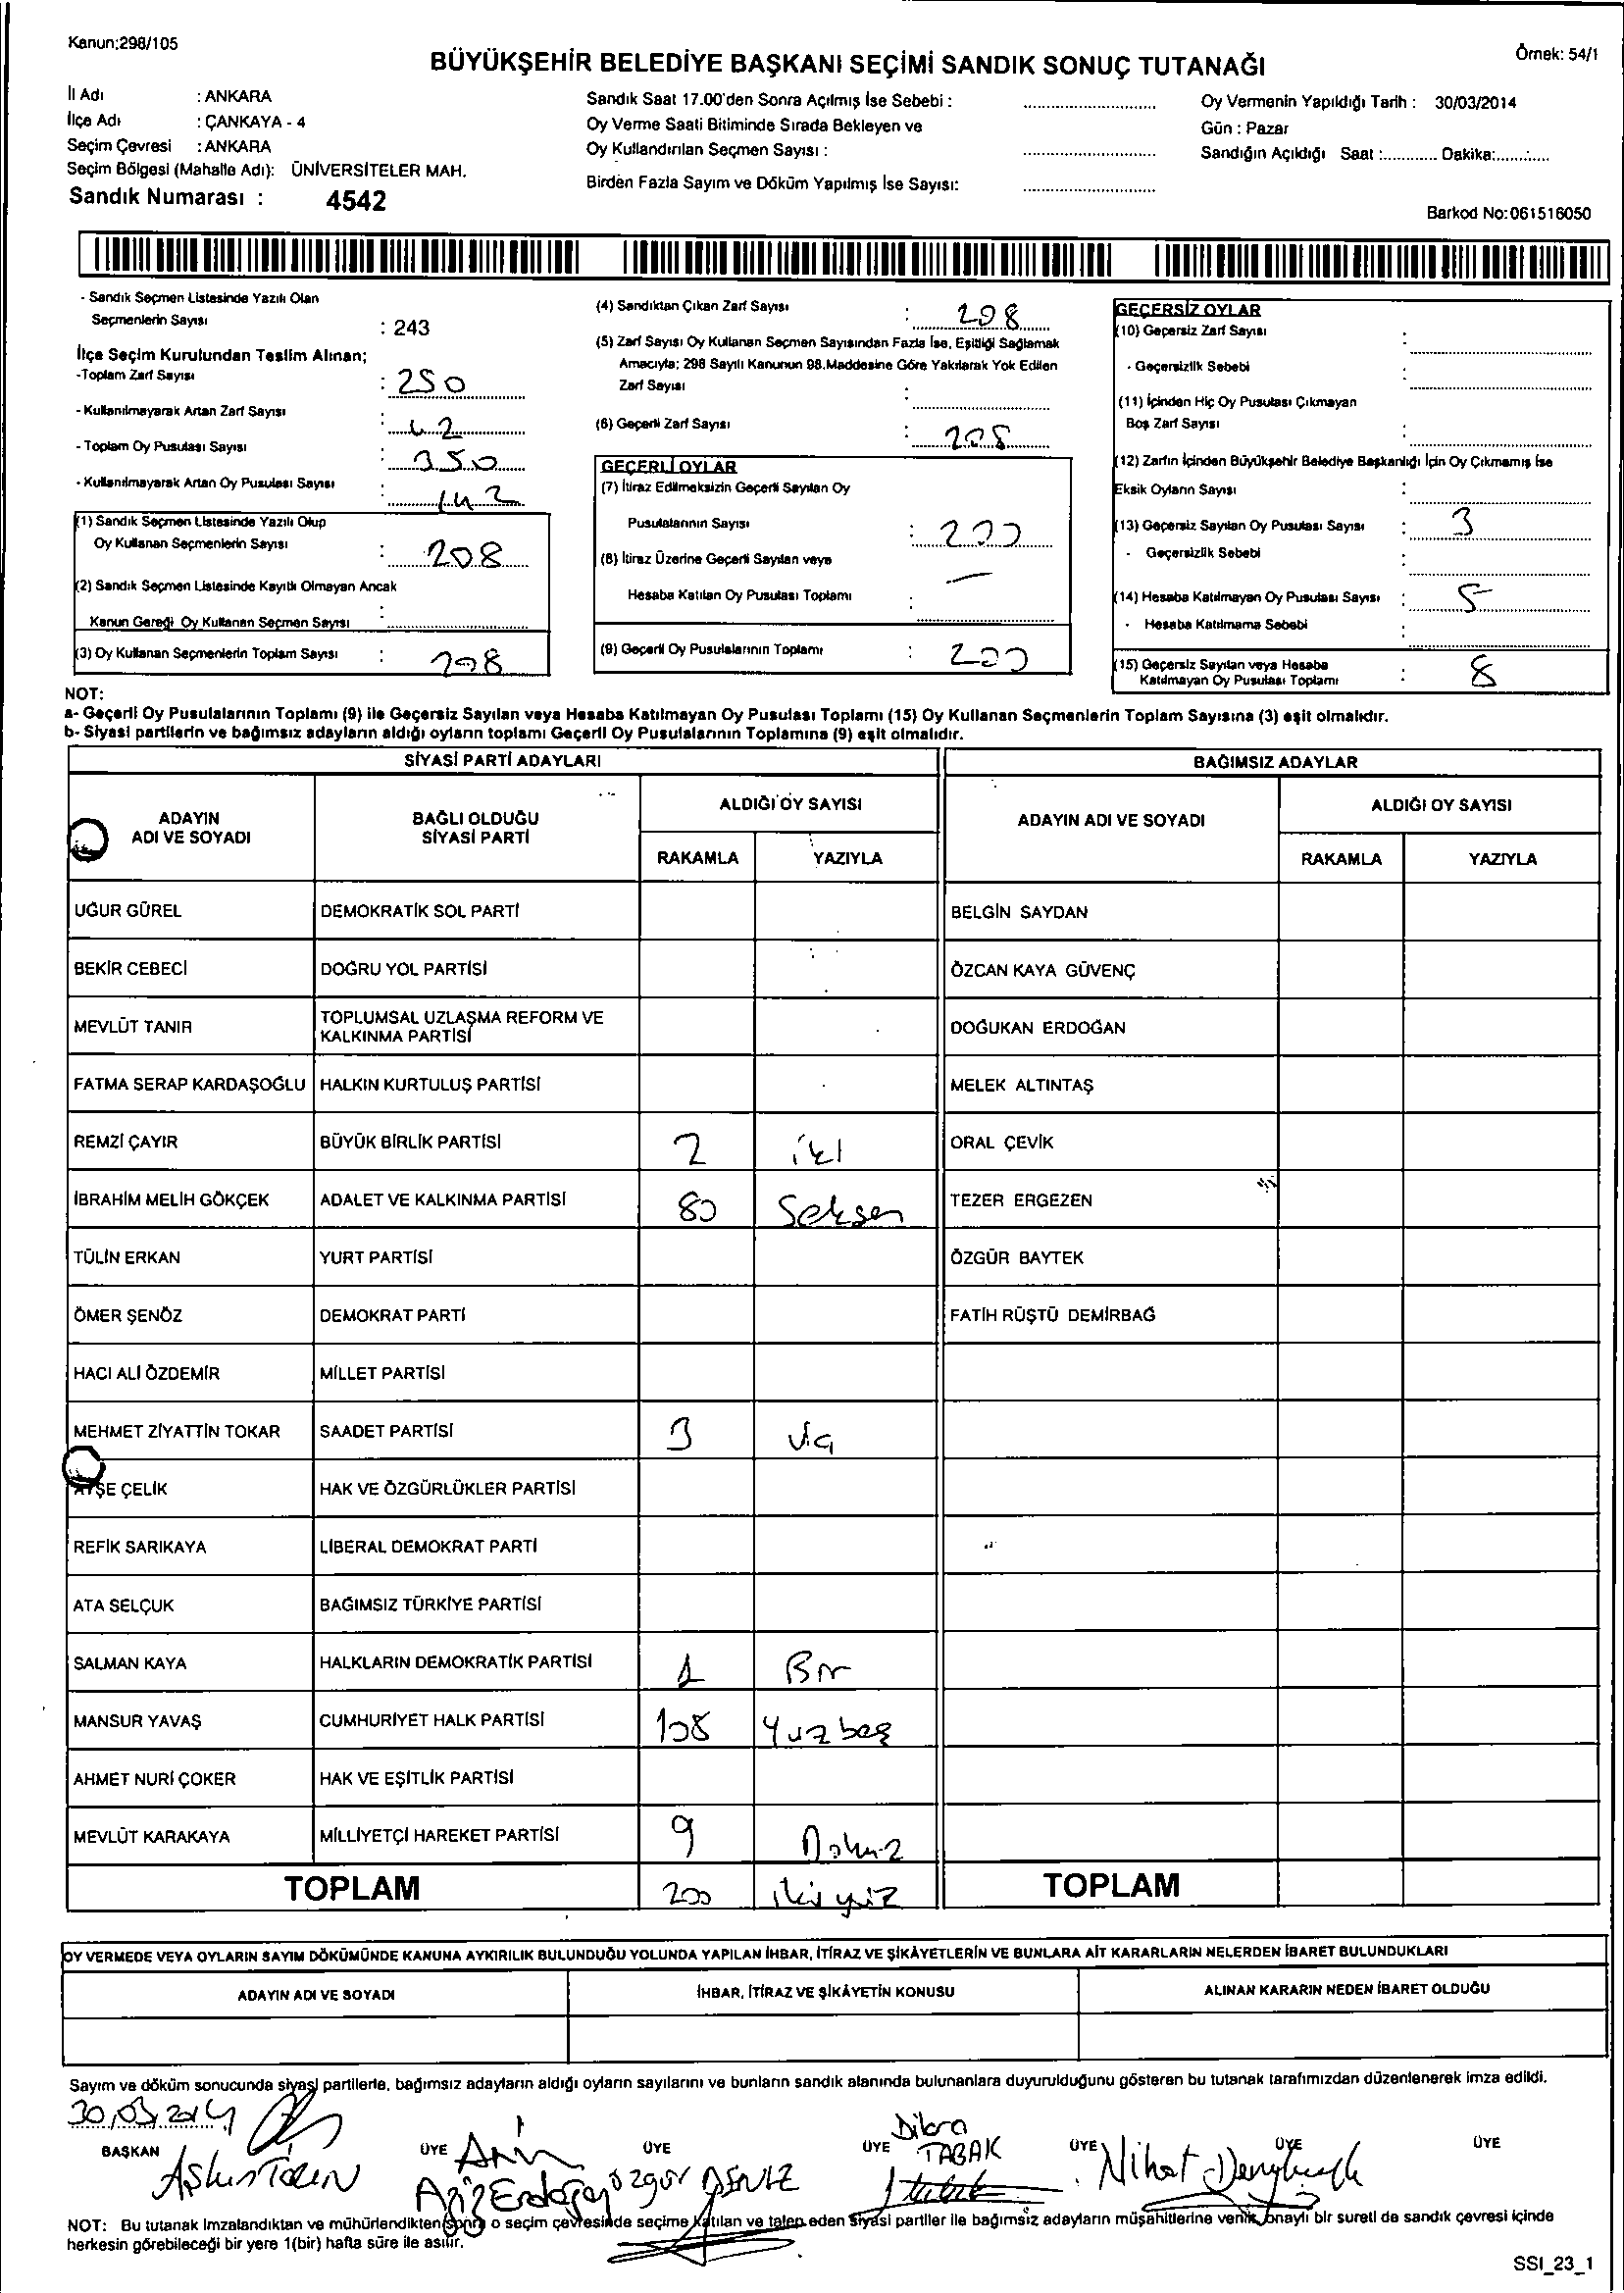 Kanun:298/105
Örnek: 54/1
BÜYÜKŞEHİR BELEDİYE BAŞKANI SEÇİMİ SANDIK SONUÇ TUTANAĞI
İl Adı : ANKARA
İlçe Adı : ÇANKAYA - 4
Seçim Çevresi : ANKARA
Seçim Bölgesi (Mahalle Adı): ÜNİVERSİTELER MAH.
Sandık Numarası : 4542
Sandık Saat 17.00'den Sonra Açılmış İse Sebebi :
Oy Verme Saati Bitiminde Sırada Bekleyen ve
Oy Kullandırılan Seçmen Sayısı :
Birden Fazla Sayım ve Döküm Yapılmış İse Sayısı:
Oy Vermenin Yapıldığı Tarih : 30/03/2014
Gün : Pazar
Sandığın Açıldığı Saat :............ Dakika:............
Barkod No:061516050
- Sandık Seçmen Listesinde Yazılı Olan
Seçmenlerin Sayısı : 243
İlçe Seçim Kurulundan Teslim Alınan;
-Toplam Zarf Sayısı : 250
- Kullanılmayarak Artan Zarf Sayısı : 42
- Toplam Oy Pusulası Sayısı : 350
- Kullanılmayarak Artan Oy Pusulası Sayısı : 142
(1) Sandık Seçmen Listesinde Yazılı Olup
Oy Kullanan Seçmenlerin Sayısı : 208
(2) Sandık Seçmen Listesinde Kayıtlı Olmayan Ancak
Kanun Gereği Oy Kullanan Seçmen Sayısı :
(3) Oy Kullanan Seçmenlerin Toplam Sayısı : 208
(4) Sandıktan Çıkan Zarf Sayısı : 208
(5) Zarf Sayısı Oy Kullanan Seçmen Sayısından Fazla İse, Eşitliği Sağlamak
Amacıyla; 298 Sayılı Kanunun 98.Maddesine Göre Yakılarak Yok Edilen
Zarf Sayısı :
(6) Geçerli Zarf Sayısı : 208
GEÇERLİ OYLAR
(7) İtiraz Edilmeksizin Geçerli Sayılan Oy
Pusulalarının Sayısı : 200
(8) İtiraz Üzerine Geçerli Sayılan veya
Hesaba Katılan Oy Pusulası Toplamı : —
(9) Geçerli Oy Pusulalarının Toplamı : 200
GEÇERSİZ OYLAR
(10) Geçersiz Zarf Sayısı :
- Geçersizlik Sebebi :
(11) İçinden Hiç Oy Pusulası Çıkmayan
Boş Zarf Sayısı :
(12) Zarfın İçinden Büyükşehir Belediye Başkanlığı İçin Oy Çıkmamış İse
Eksik Oyların Sayısı :
(13) Geçersiz Sayılan Oy Pusulası Sayısı : 3
- Geçersizlik Sebebi :
(14) Hesaba Katılmayan Oy Pusulası Sayısı : 5
- Hesaba Katılmama Sebebi :
(15) Geçersiz Sayılan veya Hesaba
Katılmayan Oy Pusulası Toplamı : 8
NOT:
a- Geçerli Oy Pusulalarının Toplamı (9) ile Geçersiz Sayılan veya Hesaba Katılmayan Oy Pusulası Toplamı (15) Oy Kullanan Seçmenlerin Toplam Sayısına (3) eşit olmalıdır.
b- Siyasi partilerin ve bağımsız adayların aldığı oyların toplamı Geçerli Oy Pusulalarının Toplamına (9) eşit olmalıdır.
SİYASİ PARTİ ADAYLARI
BAĞIMSIZ ADAYLAR
ADAYIN ADI VE SOYADI
BAĞLI OLDUĞU SİYASİ PARTİ
ALDIĞI OY SAYISI
RAKAMLA YAZIYLA
ADAYIN ADI VE SOYADI
ALDIĞI OY SAYISI
RAKAMLA YAZIYLA
UĞUR GÜREL DEMOKRATİK SOL PARTİ BELGİN SAYDAN
BEKİR CEBECİ DOĞRU YOL PARTİSİ ÖZCAN KAYA GÜVENÇ
MEVLÜT TANIR TOPLUMSAL UZLAŞMA REFORM VE KALKINMA PARTİSİ DOĞUKAN ERDOĞAN
FATMA SERAP KARDAŞOĞLU HALKIN KURTULUŞ PARTİSİ MELEK ALTINTAŞ
REMZİ ÇAYIR BÜYÜK BİRLİK PARTİSİ 2 iki ORAL ÇEVİK
İBRAHİM MELİH GÖKÇEK ADALET VE KALKINMA PARTİSİ 80 Seksen TEZER ERGEZEN
TÜLİN ERKAN YURT PARTİSİ ÖZGÜR BAYTEK
ÖMER ŞENÖZ DEMOKRAT PARTİ FATİH RÜŞTÜ DEMİRBAĞ
HACI ALİ ÖZDEMİR MİLLET PARTİSİ
MEHMET ZİYATTİN TOKAR SAADET PARTİSİ 3
AYŞE ÇELİK HAK VE ÖZGÜRLÜKLER PARTİSİ
REFİK SARIKAYA LİBERAL DEMOKRAT PARTİ
ATA SELÇUK BAĞIMSIZ TÜRKİYE PARTİSİ
SALMAN KAYA HALKLARIN DEMOKRATİK PARTİSİ 1 Bir
MANSUR YAVAŞ CUMHURİYET HALK PARTİSİ Yuzbeş
AHMET NURİ ÇOKER HAK VE EŞİTLİK PARTİSİ
MEVLÜT KARAKAYA MİLLİYETÇİ HAREKET PARTİSİ 9 Dokuz
TOPLAM 200 ikiyüz TOPLAM
OY VERMEDE VEYA OYLARIN SAYIM DÖKÜMÜNDE KANUNA AYKIRILIK BULUNDUĞU YOLUNDA YAPILAN İHBAR, İTİRAZ VE ŞİKÂYETLERİN VE BUNLARA AİT KARARLARIN NELERDEN İBARET BULUNDUKLARI
ADAYIN ADI VE SOYADI İHBAR, İTİRAZ VE ŞİKÂYETİN KONUSU ALINAN KARARIN NEDEN İBARET OLDUĞU
Sayım ve döküm sonucunda siyasi partilerle, bağımsız adayların aldığı oyların sayılarını ve bunların sandık alanında bulunanlara duyurulduğunu gösteren bu tutanak tarafımızdan düzenlenerek imza edildi.
30,03,2014
BAŞKAN ÜYE ÜYE ÜYE ÜYE ÜYE ÜYE
Dilara TABAK
Aziz Erdoğan
Özgür DENİZ
Nihat
NOT: Bu tutanak imzalandıktan ve mühürlendikten sonra o seçim çevresinde seçime katılan ve talep eden siyasi partiler ile bağımsız adayların müşahitlerine verilir, onaylı bir sureti de sandık çevresi içinde
herkesin görebileceği bir yere 1(bir) hafta süre ile asılır.
SSI_23_1